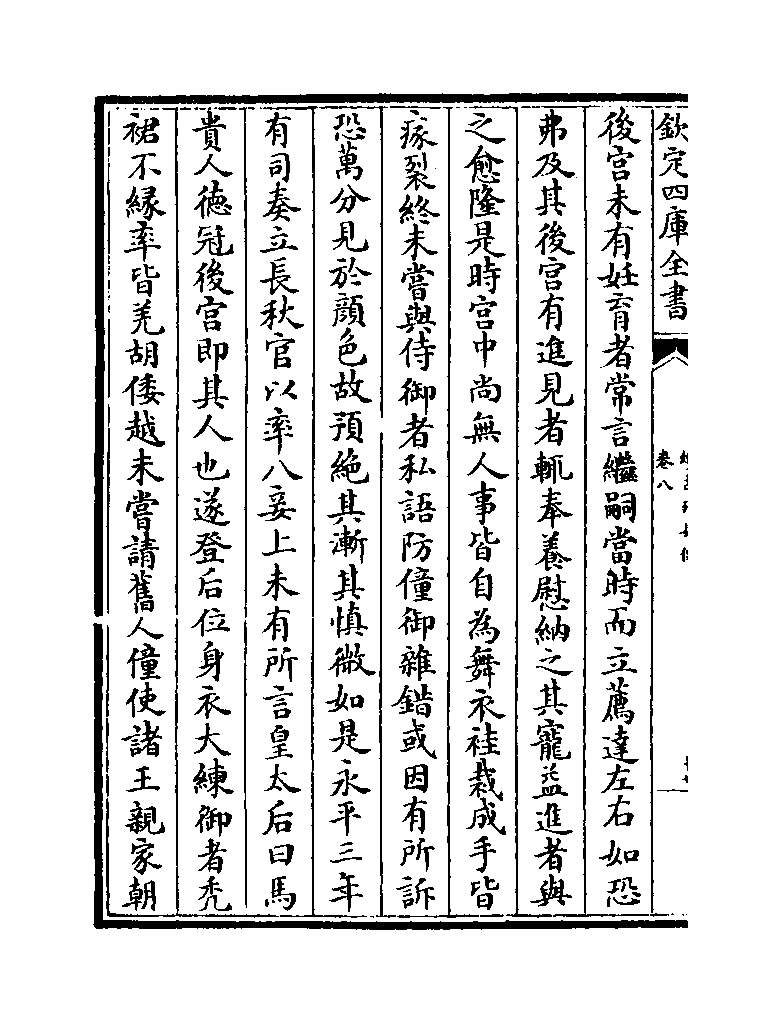 欽定四庫全書
卷八
後宮未有妊育者常言繼嗣當時而立薦達左右如恐
弗及其後宮有進見者輒奉養慰納之其寵益進者與
之愈隆是時宮中尚無人事皆自為舞衣袿裁成手皆
瘃裂終未嘗與侍御者私語防僮御雜錯或因有所訴
恐萬分見於顔色故預絶其漸其慎微如是永平三年
有司奏立長秋宮以率八妾上未有所言皇太后曰馬
貴人德冠後宮即其人也遂登后位身衣大練御者禿
裙不縁率皆羌胡倭越未嘗請舊人僮使諸王親家朝